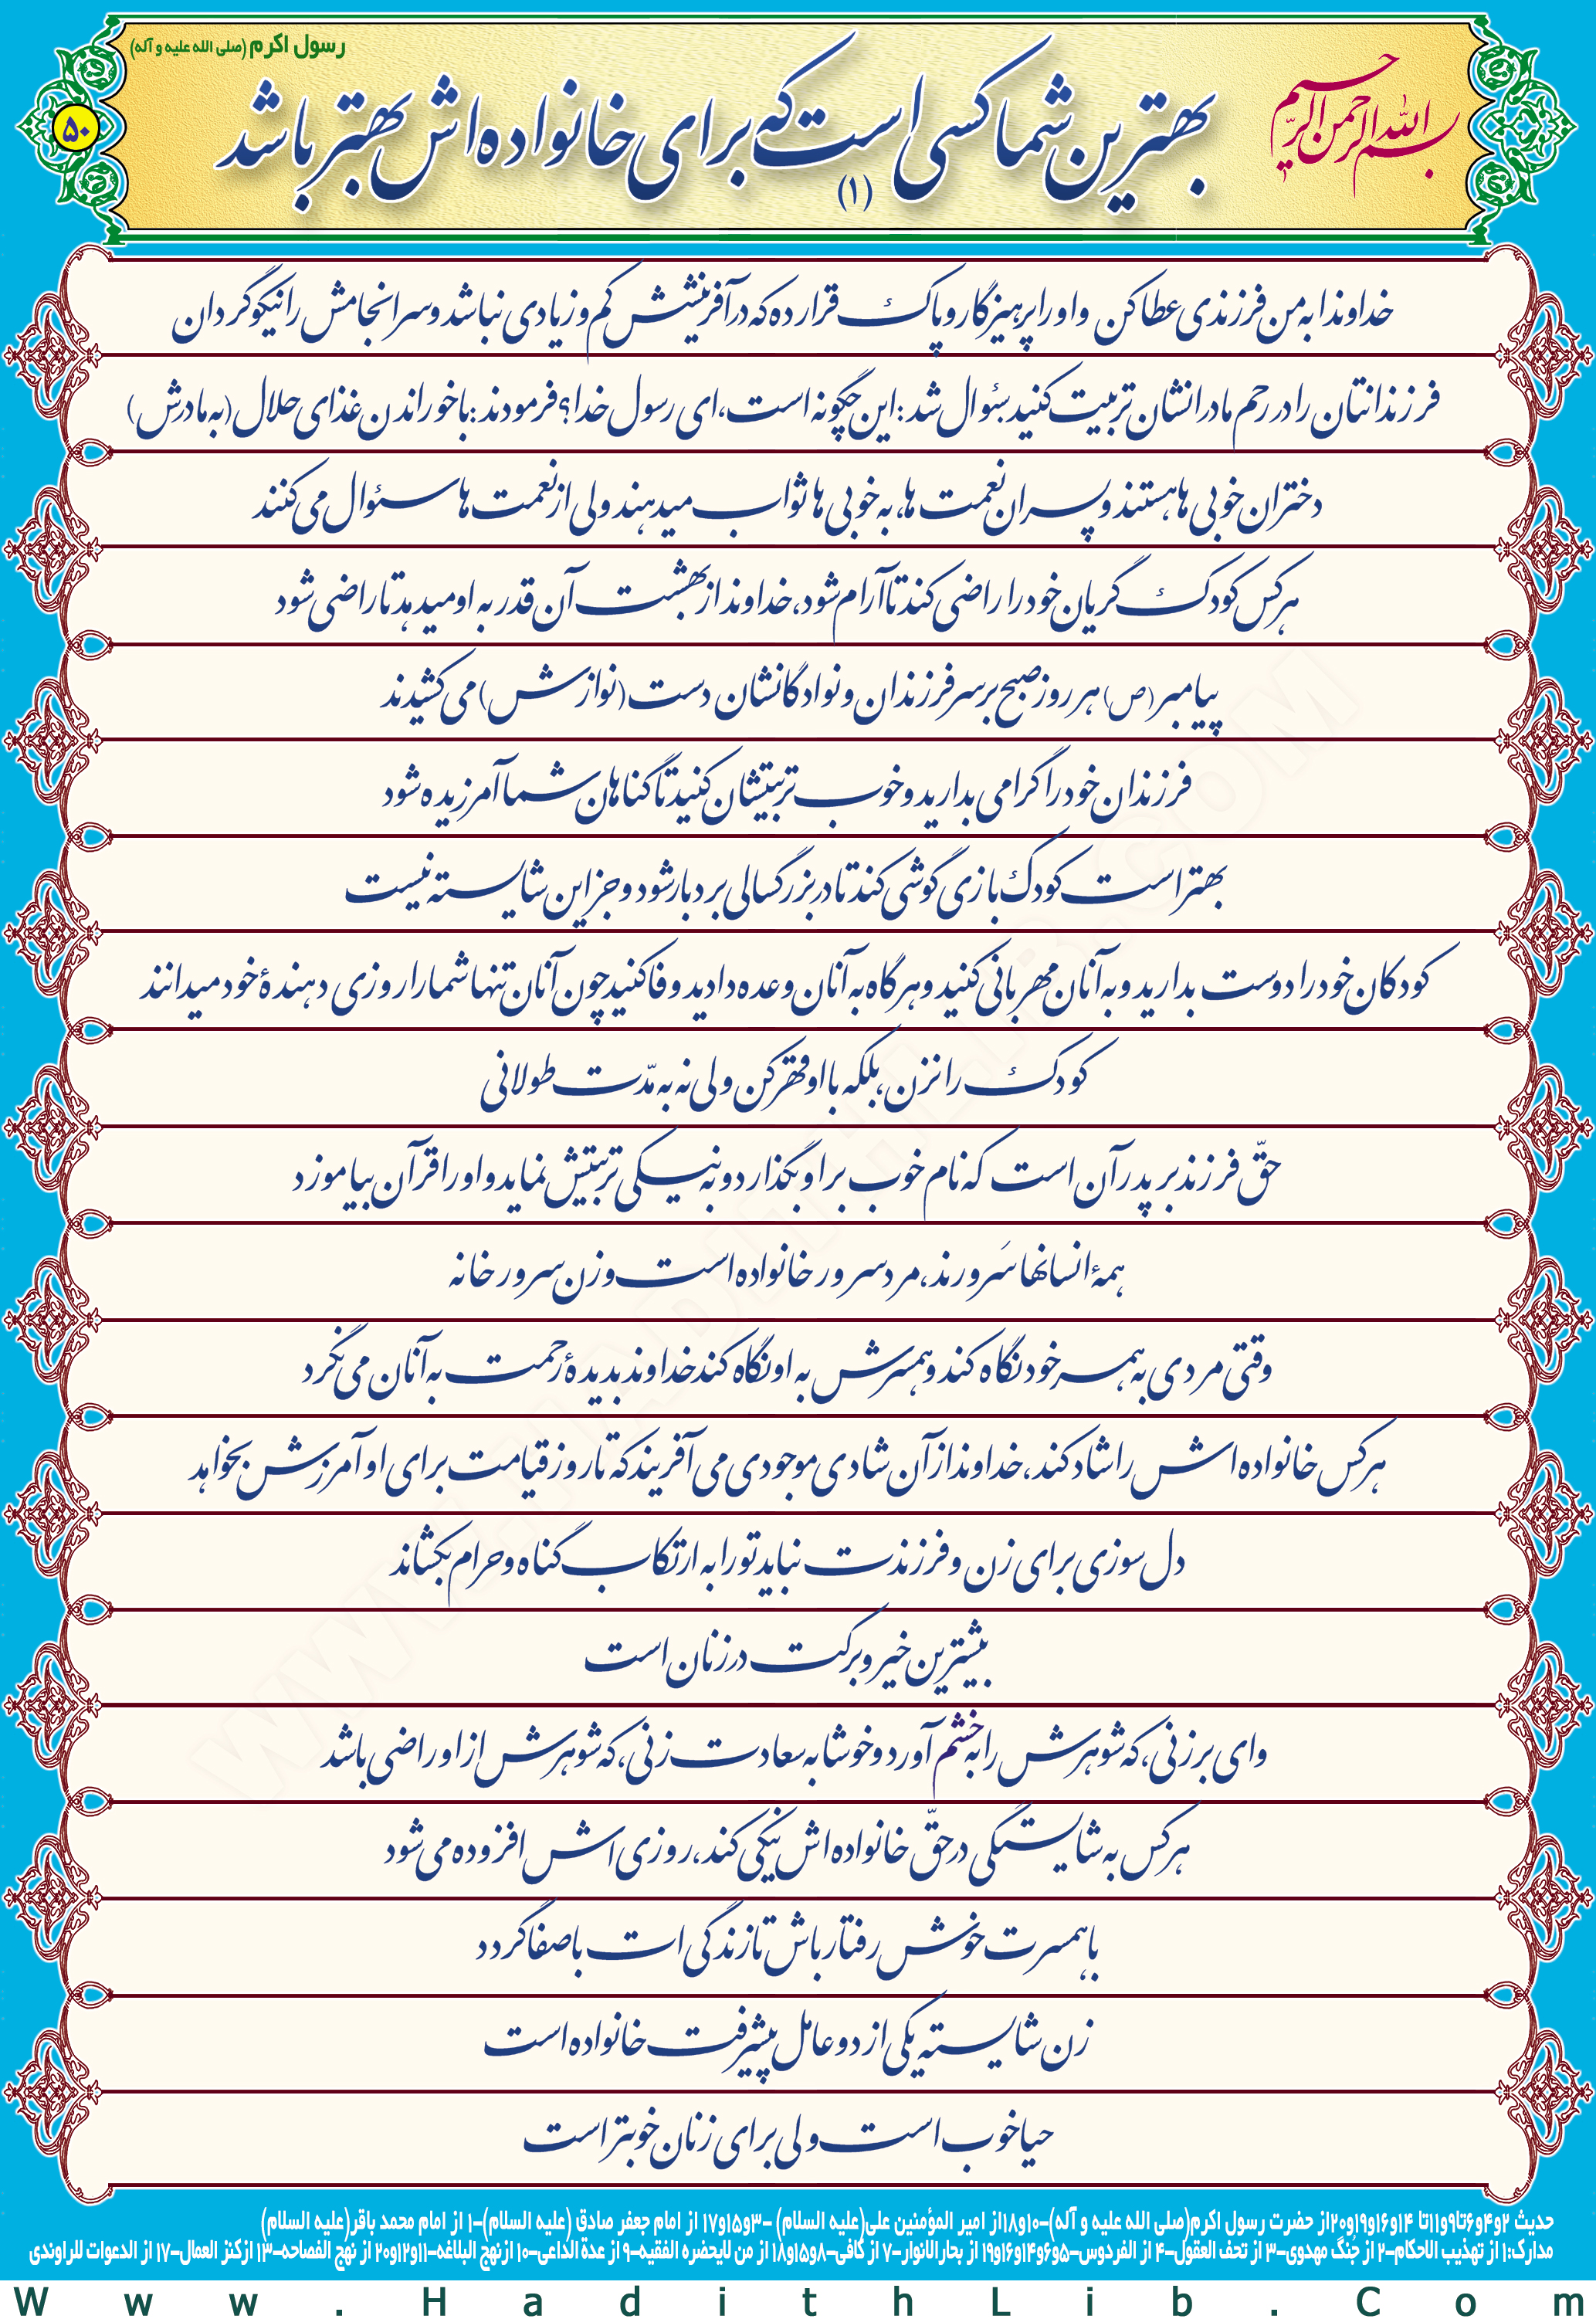 رسول اکرم (صلی الله علیه و آله)
بسم الله الرحمن الرحیم
بهترین شما کسی است که برای خانواده اش بهتر باشد
(۱)
۵۰
خداوندا به من فرزندی عطا کن و او را پرهیزگار و پاک قرار ده که در آفرینشش کم و زیادی نباشد و سرانجامش را نیکو گردان
فرزندانتان را در رحم مادرانشان تربیت کنید سؤال شد: این چگونه است، ای رسول خدا؟ فرمودند: با خوراندن غذای حلال (به مادرش)
دختران خوبی ها هستند و پسران نعمت ها، به خوبی ها ثواب میدهند ولی از نعمت ها سئوال می کنند
هر کس کودک گریان خود را راضی کند تا آرام شود، خداوند از بهشت آن قدر به او میدهد تا راضی شود
پیامبر (ص) هر روز صبح بر سر فرزندان و نوادگانشان دست (نوازش) می کشیدند
فرزندان خود را گرامی بدارید و خوب تربیتشان کنید تا گناهان شما آمرزیده شود
بهتر است کودک بازی گوشی کند تا در بزرگسالی بردبار شود و جز این شایسته نیست
کودکان خود را دوست بدارید و به آنان مهربانی کنید و هرگاه به آنان وعده دادید وفا کنید چون آنان تنها شما را روزی دهندهٔ خود میدانند
کودک را نزن، بلکه با او قهر کن ولی نه به مدّت طولانی
حقّ فرزند بر پدر آن است که نام خوب بر او بگذارد و به نیکی تربیتش نماید و او را قرآن بیاموزد
همهٔ انسانها سَرورند، مرد سرور خانواده است و زن سرور خانه
وقتی مردی به همسر خود نگاه کند و همسرش به او نگاه کند خداوند بدیدهٔ رحمت به آنان می نگرد
هر کس خانواده اش را شاد کند، خداوند از آن شادی موجودی می آفریند که تا روز قیامت برای او آمرزش بخواهد
دل سوزی برای زن و فرزندت نباید تو را به ارتکاب گناه و حرام بکشاند
بیشترین خیر و برکت در زنان است
وای بر زنی، که شوهرش را به خشم آورد و خوشا به سعادت زنی، که شوهرش از او راضی باشد
هر کس به شایستگی در حقّ خانواده اش نیکی کند، روزی اش افزوده می شود
با همسرت خوش رفتار باش تا زندگی ات باصفا گردد
زن شایسته یکی از دو عامل پیشرفت خانواده است
حیا خوب است ولی برای زنان خوبتر است
حدیث ۲و۴و۶تا۹و۱۱تا ۱۴و۱۶و۱۹و۲۰از حضرت رسول اکرم(صلی الله علیه و آله)-۱۰و۱۸از امیر المؤمنین علی(علیه السلام) -۳و۱۵و۱۷ از امام جعفر صادق (علیه السلام)-۱ از امام محمد باقر(علیه السلام)
مدارک:۱ از تهذیب الاحکام-۲ از جُنگ مهدوی-۳ از تحف العقول-۴ از الفردوس-۵و۶و۱۴و۱۶و۱۹ از بحارالانوار-۷ از کافی-۸و۱۵و۱۸ از من لایحضره الفقیه-۹ از عدة الداعی-۱۰ ازنهج البلاغه-۱۱و۱۲و۲۰ از نهج الفصاحه-۱۳ ازکنز العمال-۱۷ از الدعوات للراوندی
Www.HadithLib.Com